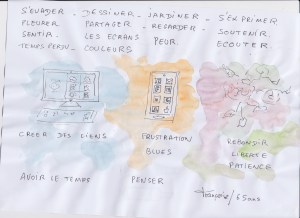 S'EVADER - DESSINER - JARDINER - S'EXPRIMER
PLEURER PARTAGER - REGARDER - SOUTENIR.
SENTIR - LES ECRANS PEUR ECOUTER.
TEMPS PERDU - COULEURS
CREER DES LIENS FRUSTRATION REBONDIR
BLUES LIBERTE
PATIENCE
AVOIR LE TEMPS PENSER
Françoise / 65 ans